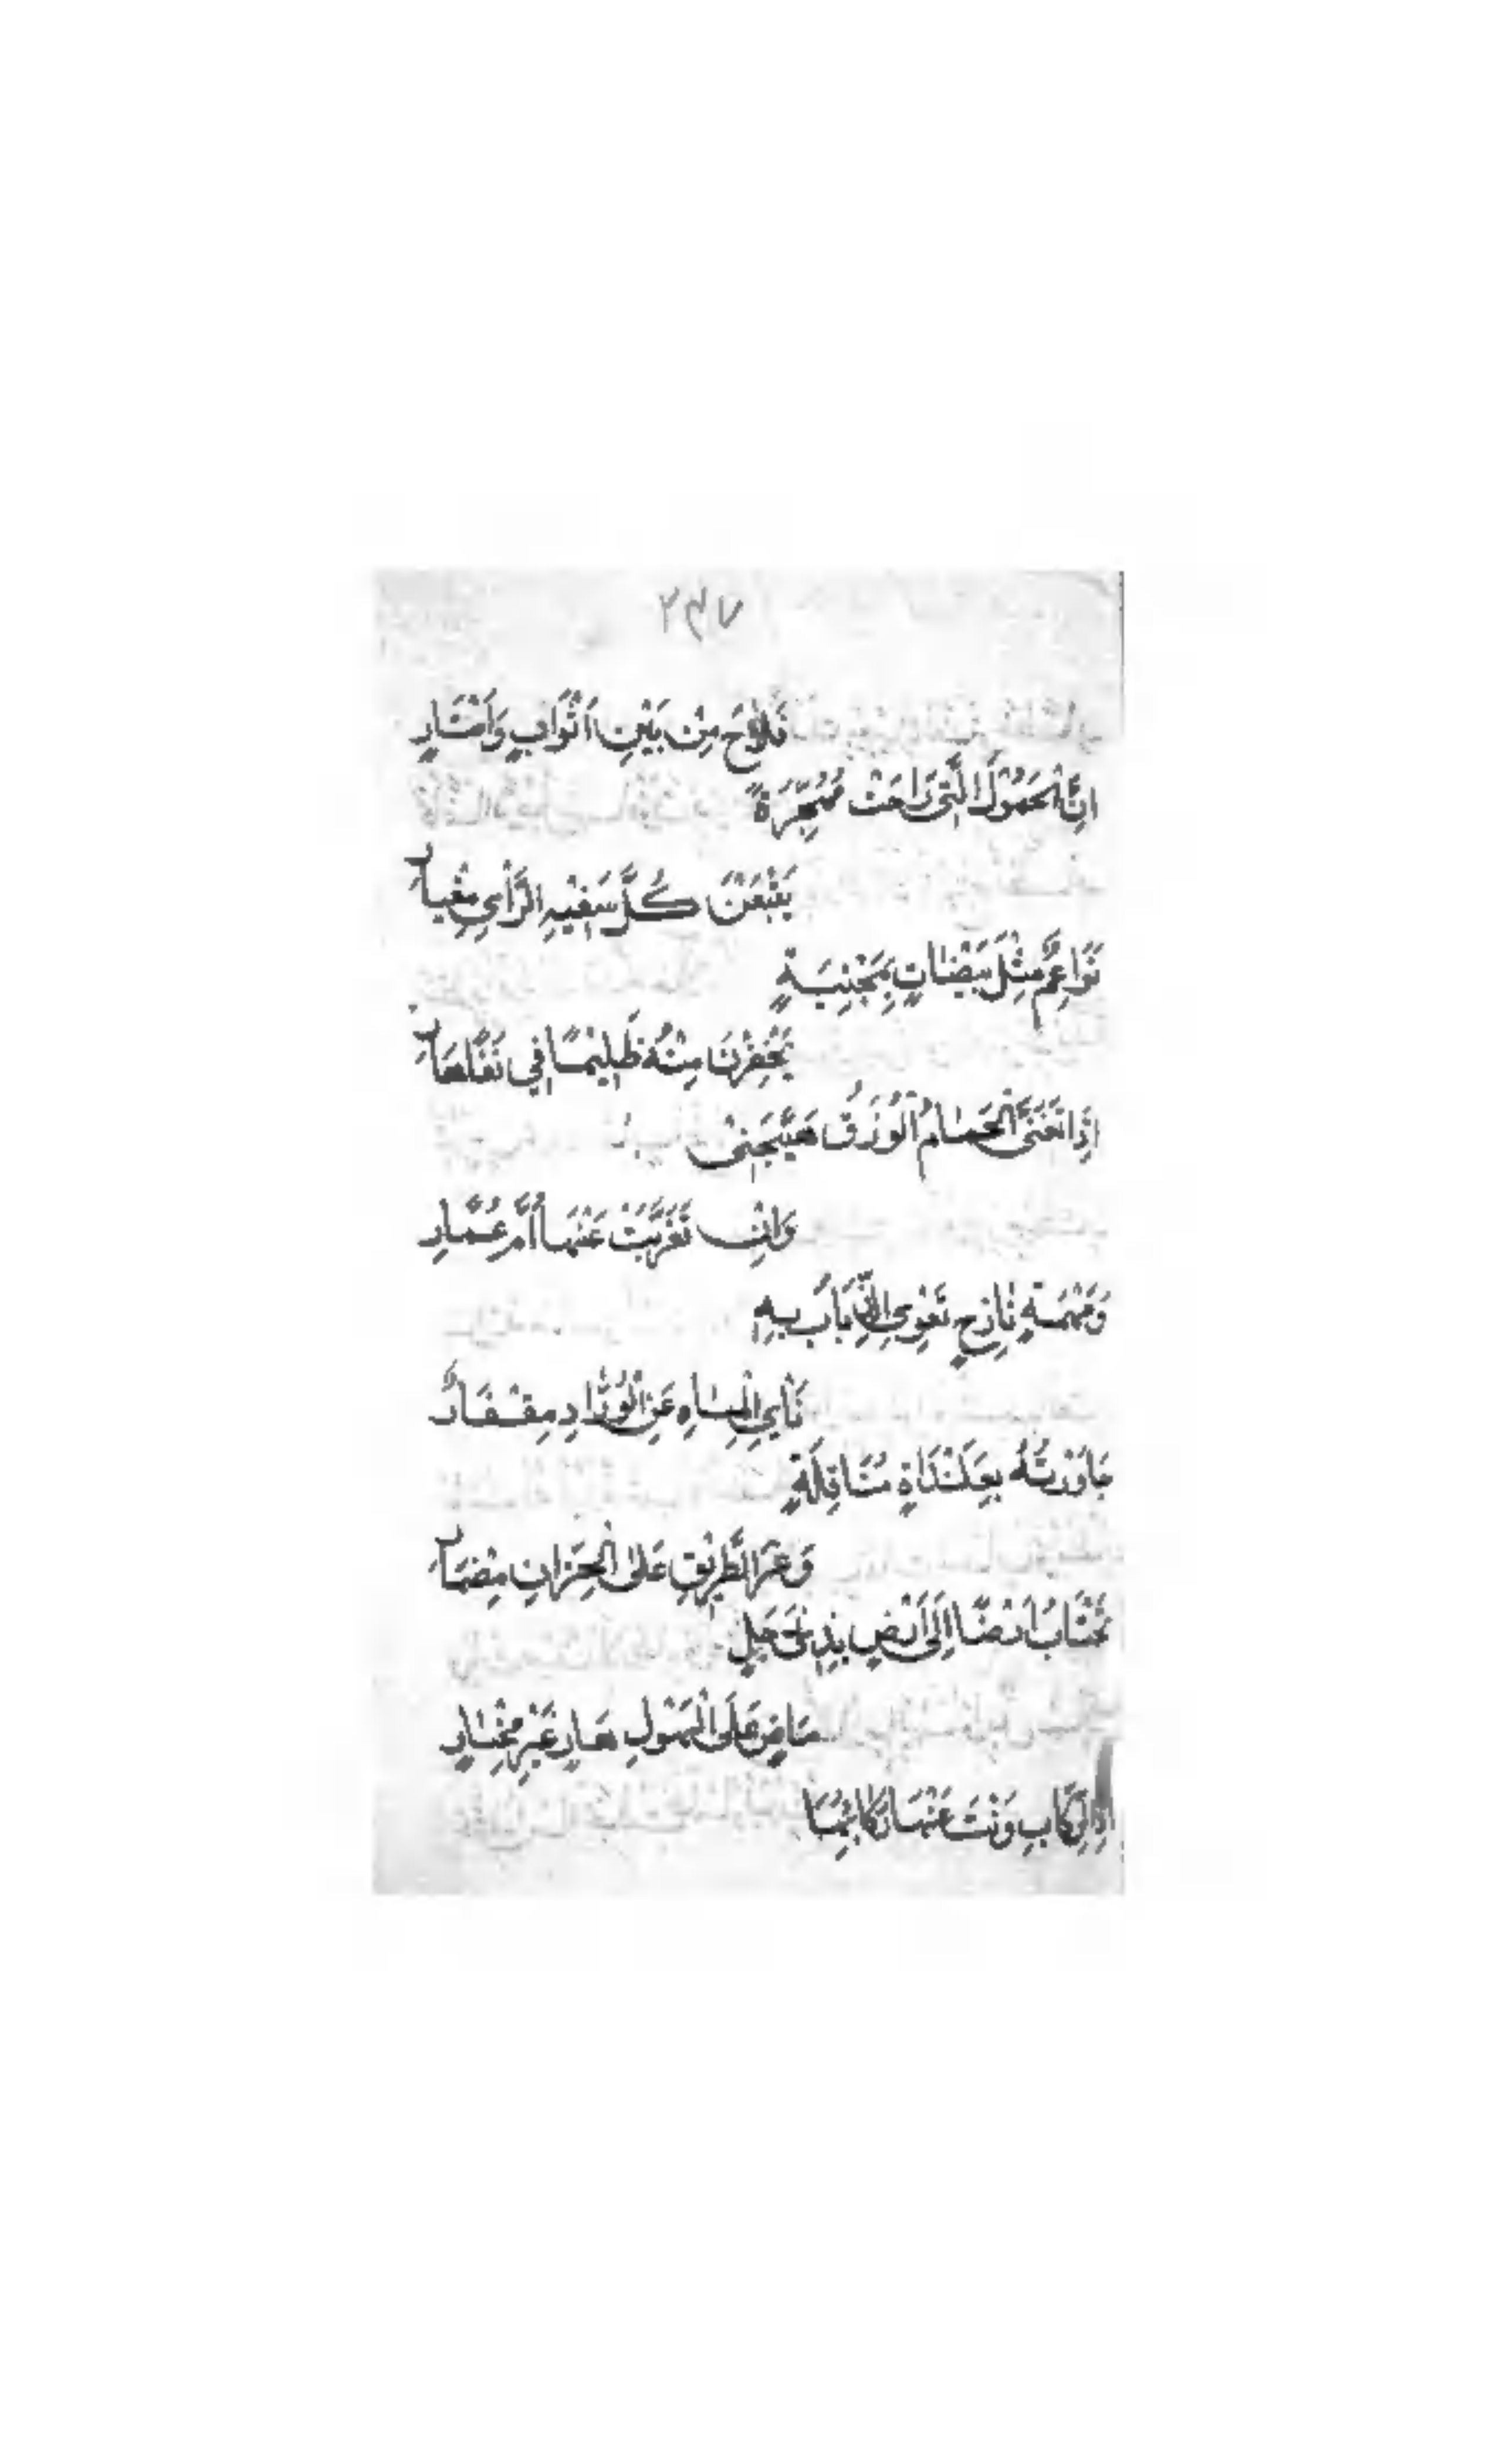 ٢٣٧
فَلَاحَ مِنْ بَيْنِ اَثْوَابٍ وَاَسْتَارِ
اِنَّ الْحَمُوْلَ الَّتِي رَاحَتْ مُهَجِّرَةً
يَتْبَعْنَ كُلَّ سَفِيْهِ الرَّأْيِ مِغْيَارِ
نَوَاعِمٌ مِثْلُ بَيْضَاتٍ بِمَحْنِيَةٍ
يَحْفِزْنَ مِنْهُ ظَلِيْمًا فِي نَقًا هَارِ
اِذَا تَغَنَّى الْحَمَامُ الْوُرْقُ هَيَّجَنِيْ
وَاِنْ تَغَرَّبْتُ عَنْهَا اُمَّ عَمَّارِ
وَمَهْمَهٍ نَازِحٍ تَعْوِي الذِّيَابُ بِهِ
نَائِي الْمِيَاهِ عَنِ الْوُرَّادِ مِقْفَارِ
جَاوَزْتُهُ بِعَلَنْدَاةٍ مُنَاقِلَةٍ
وَعْرَ الطَّرِيْقِ عَلَى الْحِزَانِ مِضْمَارِ
تَجْتَابُ اَرْضًا اِلَى اَرْضٍ بِذِي رَجُلٍ
مَاضٍ عَلَى الْهَوْلِ هَادٍ غَيْرِ مِحْيَارِ
اِذَا الرِّكَابُ وَنَتْ عَنْهَا رَكَائِبُهَا